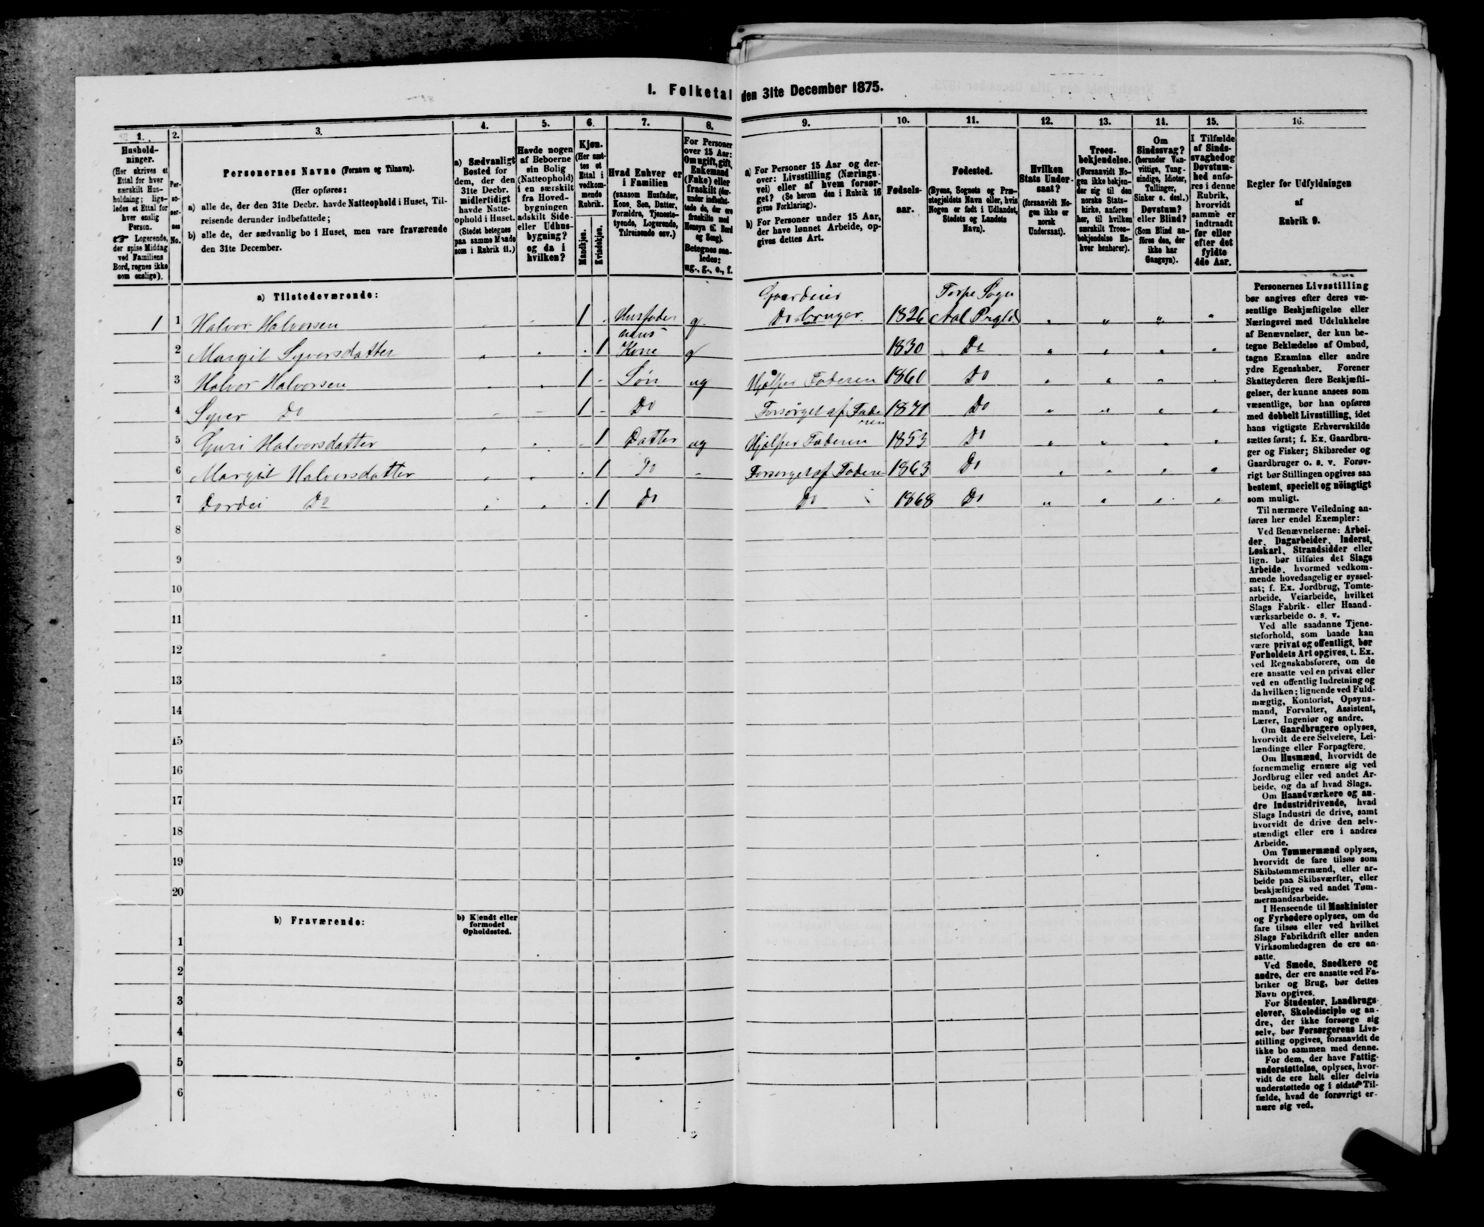 I. Folketal den 31te December 1875.
1.
2.
3.
4.
5.
6.
7.
8.
9.
10.
11.
12.
13.
14.
15.
16.
Hushold-
ninger.
(Her skrives et
Ettal for hver
særskilt Hus-
holdning; lige-
ledes et Ettal for
hver enslig
Person.
☞ Logerende,
der spise Middag
ved Familiens
Bord, regnes ikke
som enslige).
Per-
so-
ner-
nes
No.
Personernes Navne (Fornavn og Tilnavn).
(Her opføres:
a) alle de, der den 31te Decbr. havde Natteophold i Huset, Til-
reisende derunder indbefattede;
b) alle de, der sædvanlig bo i Huset, men vare fraværende
den 31te December.
a) Sædvanligt
Bosted for
dem, der den
31te Decbr.
midlertidigt
havde Natte-
ophold i Huset.
(Stedet betegnes
paa samme Maade
som i Rubrik 11.)
Havde nogen
af Beboerne
sin Bolig
(Natteophold)
i en særskilt
fra Hoved-
bygningen
adskilt Side-
eller Udhus-
bygning?
og da i
hvilken?
Kjøn.
(Her sæt-
tes et
Ettal i
vedkom-
mende
Rubrik.
Mandkjøn.
Kvindekjøn.
Hvad Enhver er
i Familien
(saasom Husfader,
Kone, Søn, Datter,
Forældre, Tjeneste-
tyende, Logerende,
Tilreisende osv.)
For Personer
over 15 Aar:
Om ugift, gift,
Enkemand
(Enke) eller
fraskilt (der-
under indbefat-
tede de, der ere
fraskilte med
Hensyn til Bord
og Seng).
Betegnes saa-
ledes:
ug., g., e., f.
a) For Personer 15 Aar og der-
over: Livsstilling (Nærings-
vei) eller af hvem forsør-
get? (Se herom den i Rubrik 16
givne Forklaring).
b) For Personer under 15 Aar,
der have lønnet Arbeide, op-
gives dettes Art.
Fødsels-
aar.
Fødested.
(Byens, Sognets og Præ-
stegjeldets Navn eller, hvis
Nogen er født i Udlandet,
Stedets og Landets
Navn).
Hvilken
Stats Under-
saat?
(forsaavidt No-
gen ikke er
norsk
Undersaat).
Troes-
bekjendelse.
(Forsaavidt No-
gen ikke bekjen-
der sig til den
norske Stats-
kirke, anføres
her, til hvilken
særskilt Troes-
bekjendelse En-
hver henhører).
Om
Sindssvag?
(herunder Van-
vittige, Tung-
sindige, Idioter,
Tullinger,
Sinker o. desl.)
Døvstum?
eller Blind?
(Som Blind an-
føres den, der
ikke har
Gangsyn).
I Tilfælde
af Sinds-
svaghed og
Døvstum-
hed anfø-
res i denne
Rubrik,
hvorvidt
samme er
indtraadt
før eller
efter det
fyldte
4de Aar.
Regler for Udfyldningen
af
Rubrik 9.
a) Tilstedeværende:
1 1 Halvor Halvorsen 1 Husfader g. Gaardeier Do bruger 1826 Torpe Sogn Aal Prgld
2 Margit Syversdatter 1 hans Kone g 1830 Do
3 Halvor Halvorsen 1 Søn ug Hjælper Faderen 1860 Do
4 Syver Do 1 Do Forsørget af Faderen 1871 Do
5 Guri Halvorsdatter 1 Datter ug Hjælper Faderen 1853 Do
6 Margit Halvorsdatter 1 Do Forsørget af Faderen 1863 Do
7 Dordei Do 1 Do Do 1868 Do
8
9
10
11
12
13
14
15
16
17
18
19
20
b) Fraværende:
b) Kjendt eller
formodet
Opholdssted.
1
2
3
4
5
6
Personernes Livsstilling
bør angives efter deres væ-
sentlige Beskjæftigelse eller
Næringsvei med Udelukkelse
af Benævnelser, der kun be-
tegne Beklædelse af Ombud,
tagne Examina eller andre
ydre Egenskaber. Forener
Skatteyderen flere Beskjæfti-
gelser, der kunne ansees som
væsentlige, bør han opføres
med dobbelt Livsstilling, idet
hans vigtigste Erhvervskilde
sættes først; f. Ex. Gaardbru-
ger og Fisker; Skibsreder og
Gaardbruger o. s. v. Forøv-
rigt bør Stillingen opgives saa
bestemt, specielt og nöiagtigt
som muligt.
Til nærmere Veiledning an-
føres her endel Exempler:
Ved Benævnelserne: Arbei-
der, Dagarbeider, Inderst,
Løskarl, Strandsidder eller
lign. bør tilføies det Slags
Arbeide, hvormed vedkom-
mende hovedsagelig er syssel-
sat; f. Ex. Jordbrug, Tomte-
arbeide, Veiarbeide, hvilket
Slags Fabrik- eller Haand-
værksarbeide o. s. v.
Ved alle saadanne Tjene-
steforhold, som baade kan
være privat og offentligt, bør
Forholdets Art opgives, t. Ex.
ved Regnskabsførere, om de
ere ansatte ved en privat eller
ved en offentlig Indretning og
da hvilken; lignende ved Fuld-
mægtig, Kontorist, Opsyns-
mand, Forvalter, Assistent,
Lærer, Ingeniør og andre.
Om Gaardbrugere oplyses,
hvorvidt de ere Selveiere, Lei-
lændinge eller Forpagtere.
Om Husmænd, hvorvidt de
fornemmelig ernære sig ved
Jordbrug eller ved andet Ar-
beide, og da af hvad Slags.
Om Haandværkere og an-
dre Industridrivende, hvad
Slags Industri de drive, samt
hvorvidt de drive den selv-
stændigt eller ere i andres
Arbeide.
Om Tømmermænd oplyses,
hvorvidt de fare tilsøs som
Skibstømmermænd, eller ar-
beide paa Skibsværfter, eller
beskjæftiges ved andet Tøm-
mermandsarbeide.
I Henseende til Maskinister
og Fyrbødere oplyses, om de
fare tilsøs eller ved hvilket
Slags Fabrikdrift eller anden
Virksomhedsgren de ere an-
satte.
Ved Smede, Snedkere og
andre, der ere ansatte ved Fa-
briker og Brug, bør dettes
Navn opgives.
For Studenter, Landbrugs-
elever, Skoledisciple og an-
dre, der ikke forsørge sig
selv, bør Forsørgerens Livs-
stilling opgives, forsaavidt de
ikke bo sammen med denne.
For dem, der have Fattig-
understøttelse, oplyses, hvor-
vidt de ere helt eller delvis
understøttede og i sidste Til-
fælde, hvad de forøvrigt er-
nære sig ved.